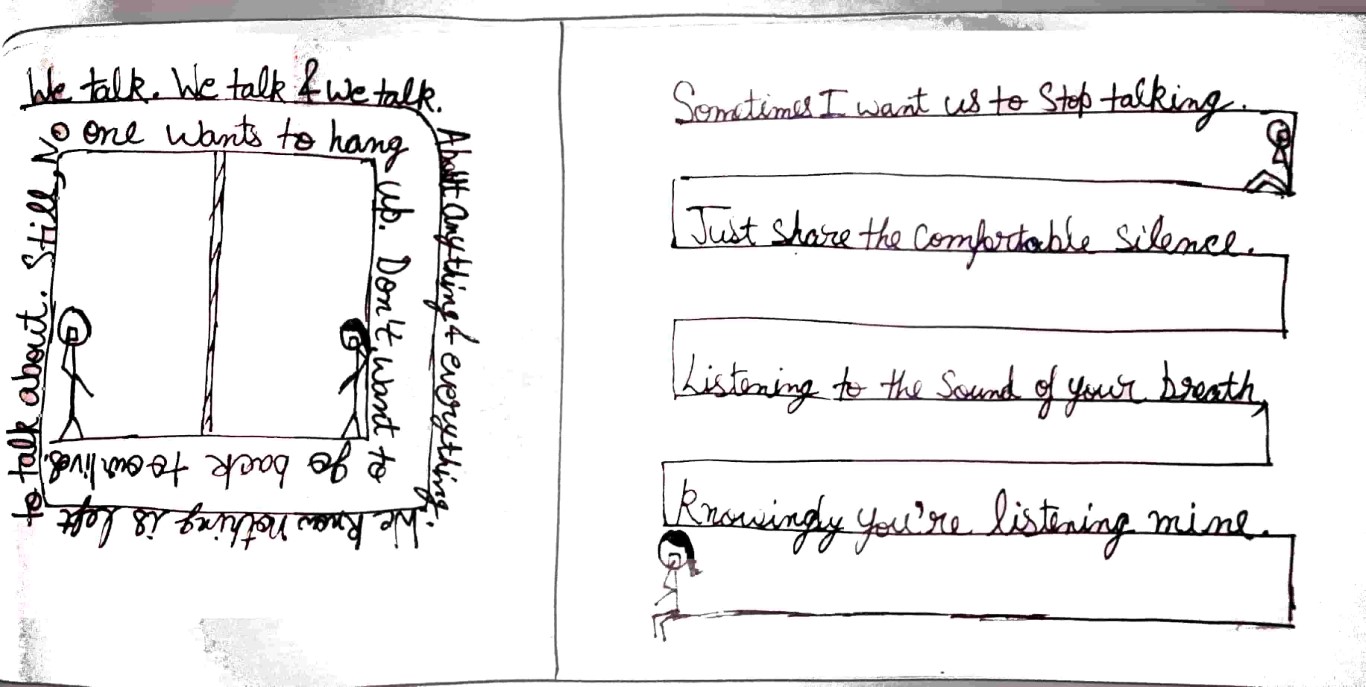 We talk. We talk & we talk.
About anything & everything.
We know nothing is left
to talk about. Still, No
one wants to hang
up. Don't want to
go back to our lives.
Sometimes I want us to Stop talking.
Just share the comfortable silence.
Listening to the Sound of your breath,
Knowingly you're listening mine.